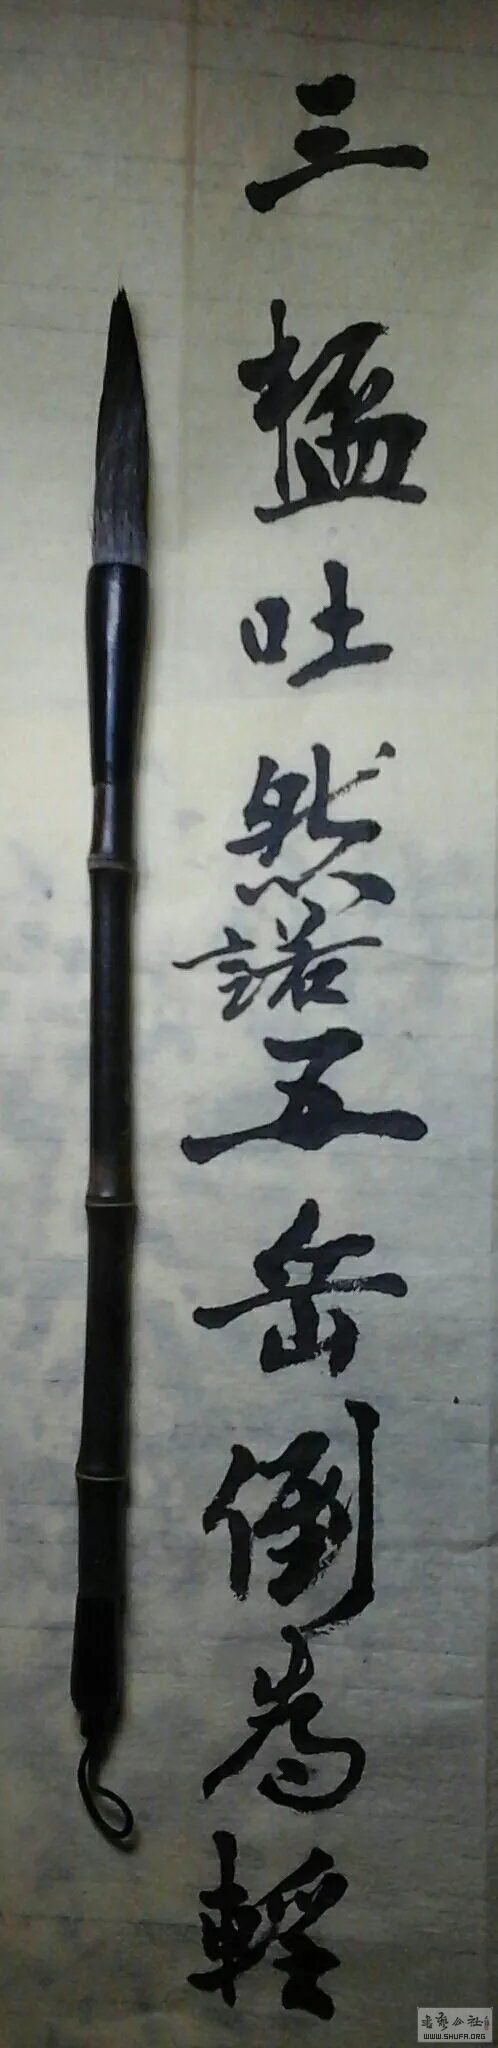 三杯吐然諾五岳倒為輕
書藝公社
WWW.SHUFA.ORG